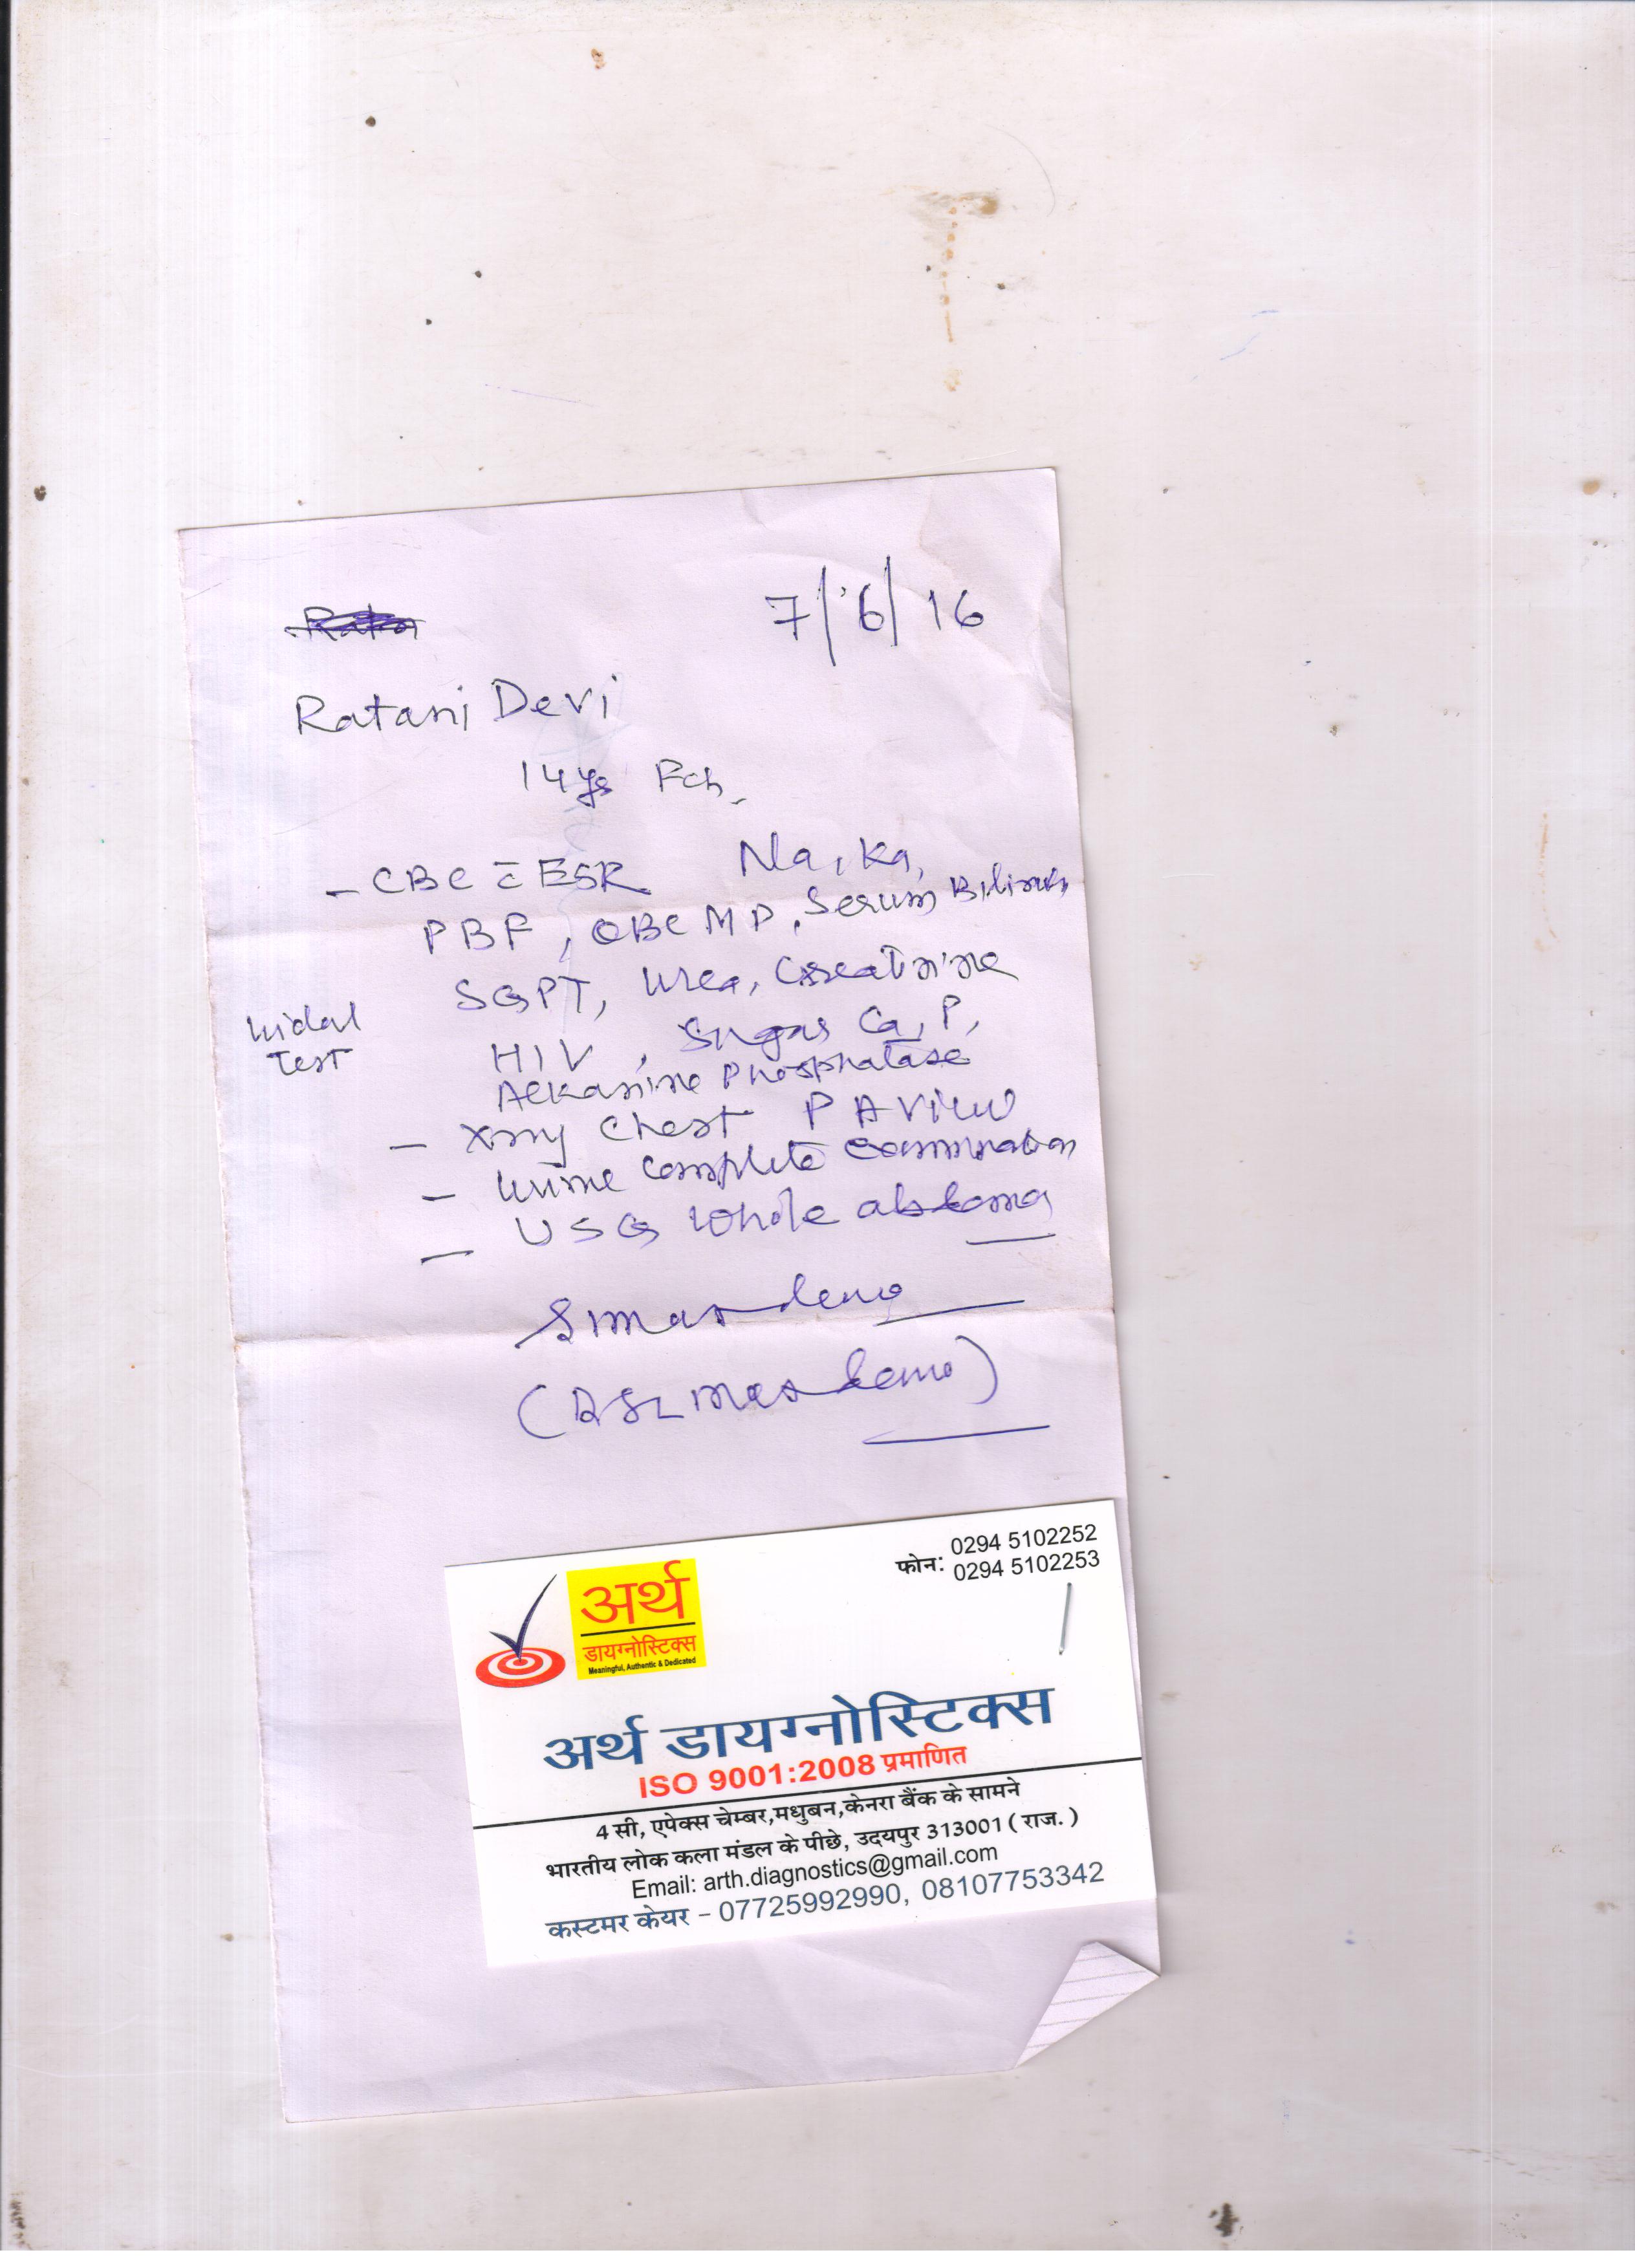 7/6/16
Ratani Devi
14 yrs Fch.
- CBC c̄ ESR Na, Ka,
PBF, QBC MP, Serum Bilirubin
SGPT, Urea, Creatinine
Widal
Test
HIV, Sugar Ca, P,
Alkanine Phosphatase
- Xray Chest P A View
- Urine Complete examination
- USG Whole
फोन: 0294 5102252
0294 5102253
अर्थ
डायग्नोस्टिक्स
Meaningful, Authentic & Dedicated
अर्थ डायग्नोस्टिक्स
ISO 9001:2008 प्रमाणित
4 सी, एपेक्स चेम्बर,मधुबन,केनरा बैंक के सामने
भारतीय लोक कला मंडल के पीछे, उदयपुर 313001 ( राज. )
Email: arth.diagnostics@gmail.com
कस्टमर केयर – 07725992990, 08107753342